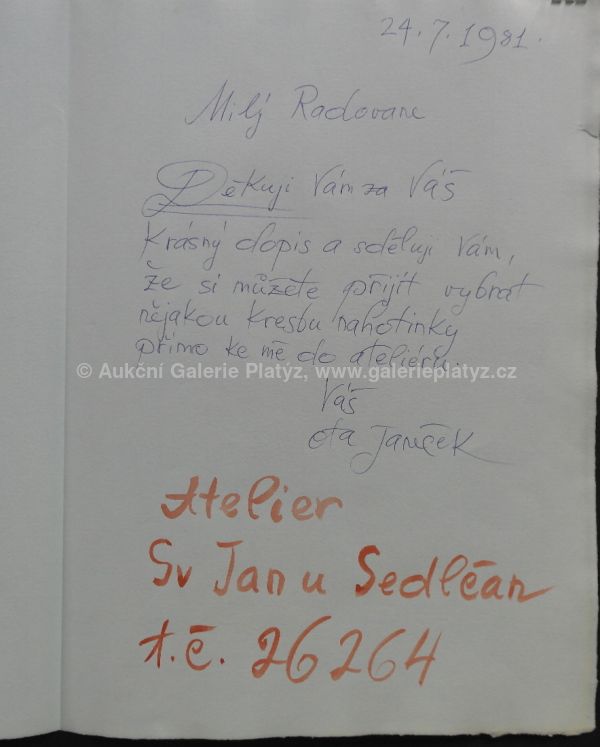 24.7.1981.
Milý Radovane
Děkuji Vám za Váš
krásný dopis a sděluji Vám,
že si můžete přijít vybrat
nějakou kresbu nahotinky
přímo ke mě do ateliéru.
© Aukční Galerie Platýz, www.galerieplatyz.cz
Váš
Ota Janeček
Atelier
Sv Jan u Sedlčan
t.č. 26264